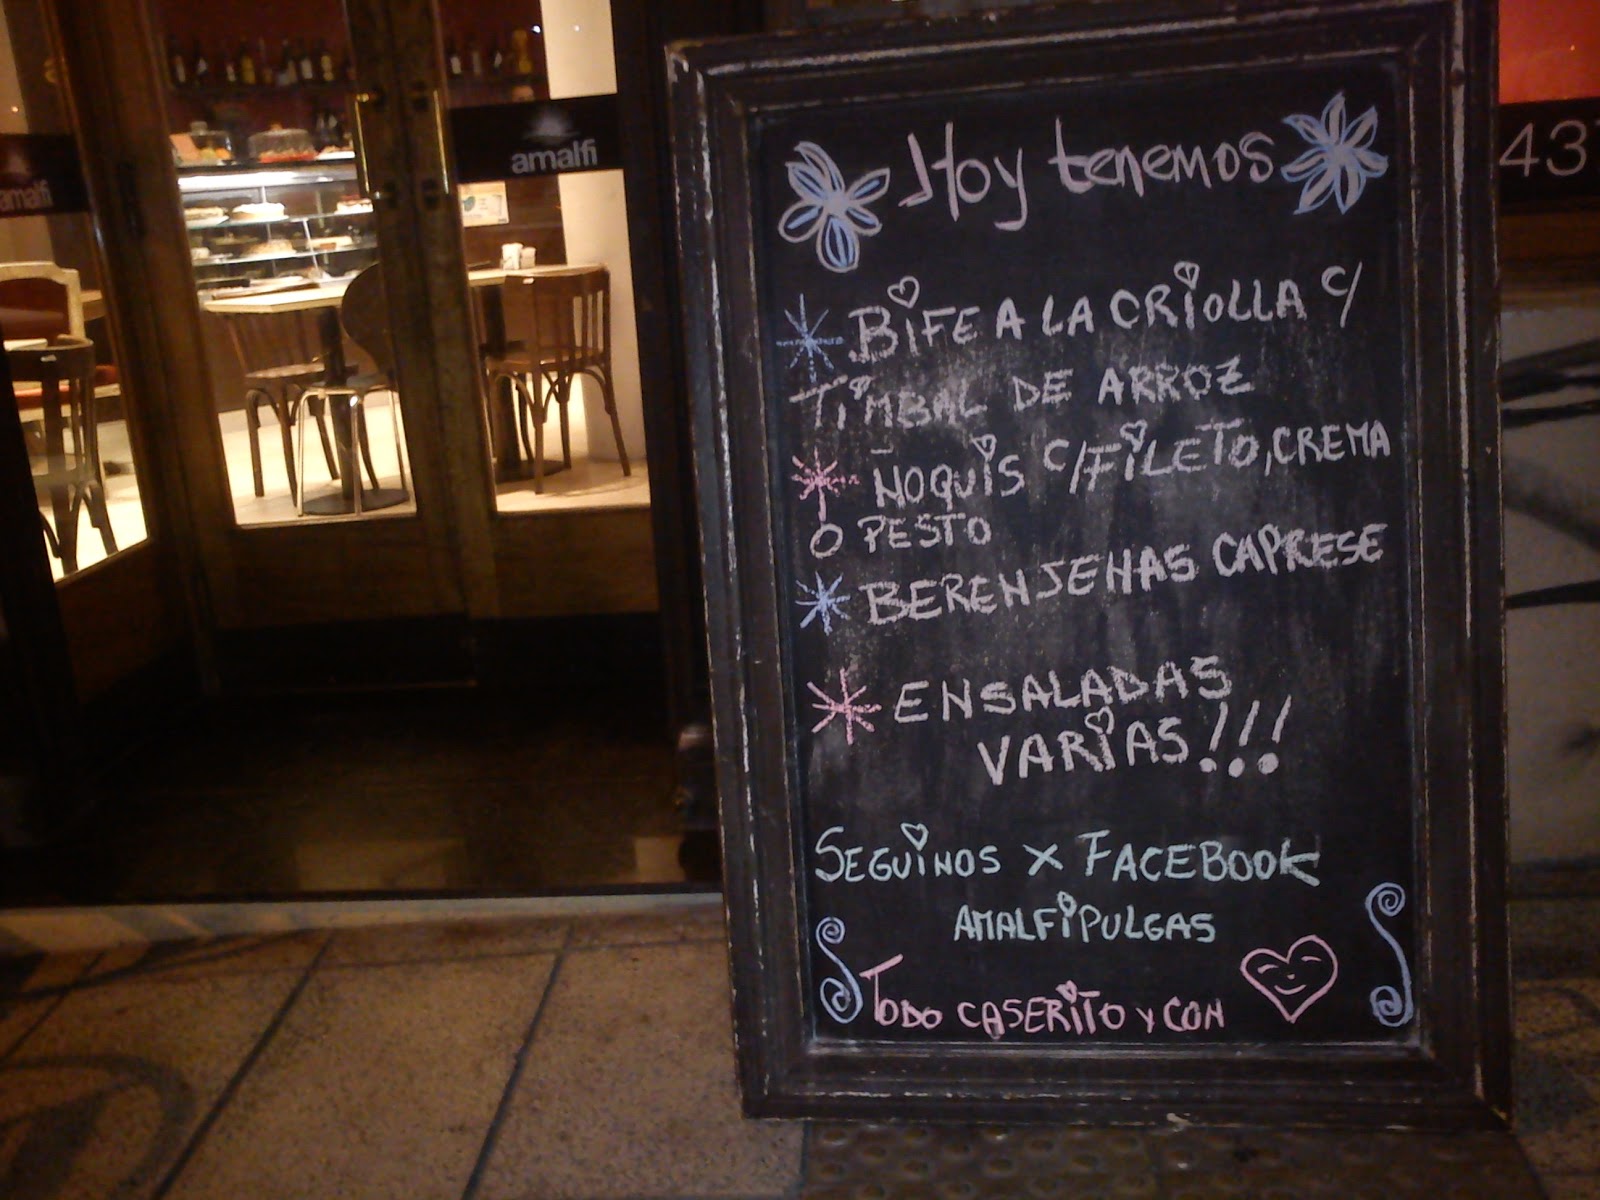 amalfi
amalfi
43
Hoy tenemos
BIFE A LA CRIOLLA C/
TIMBAL DE ARROZ
ÑOQUIS C/FILETO, CREMA
O PESTO
BERENJENAS CAPRESE
ENSALADAS
VARIAS!!!
SEGUINOS X FACEBOOK
AMALFIPULGAS
TODO CASERITO Y CON